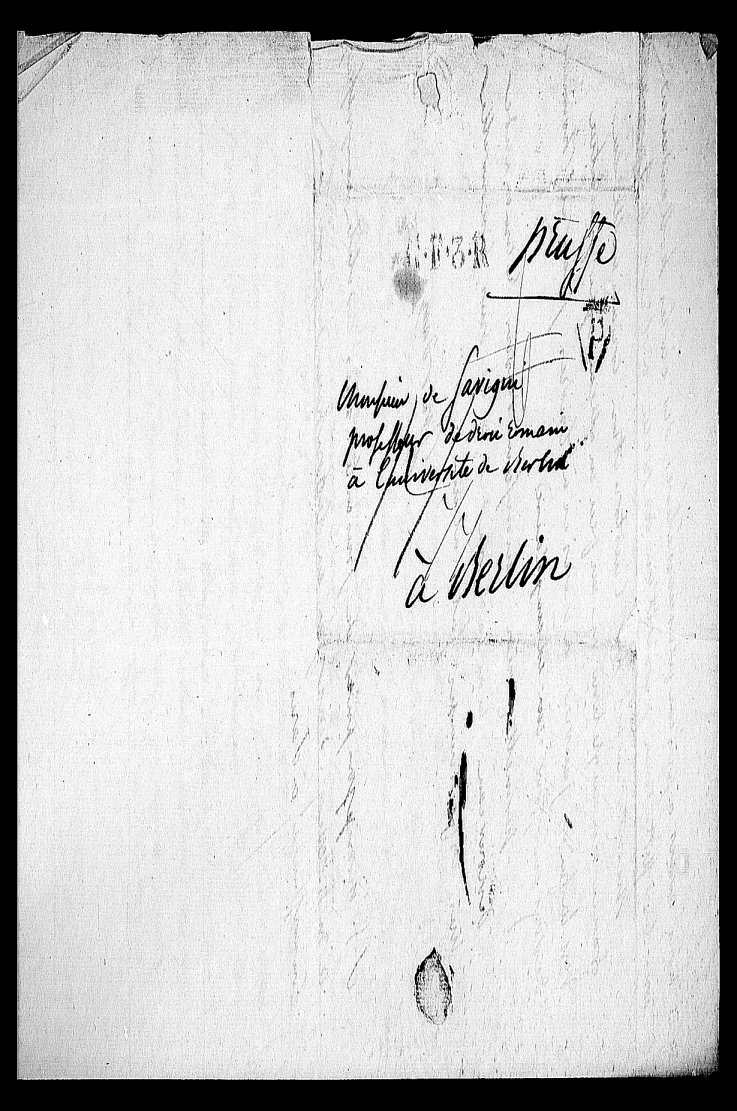 C.F.3.R
prusse
Monsieur de Savigni
professeur de droit romain
à l'université de Berlin
à Berlin